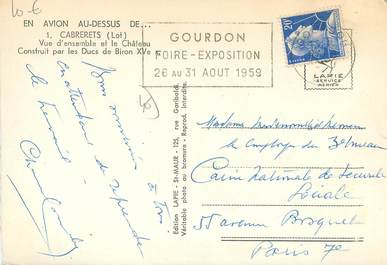 10 €
EN AVION AU-DESSUS DE...
1. CABRERETS (Lot)
Vue d'ensemble et le Château
Construit par les Ducs de Biron XVe
GOURDON
FOIRE-EXPOSITION
26 AU 31 AOUT 1959
20F
LAPIE
SERVICE
AÉRIEN
Édition LAPIE - St-MAUR - 125, rue Garibaldi.
Véritable photo au bromure - Reprod. Interdite
Bon souvenir à tous
en attendant de reprendre
le travail
Madame
les Employés du 3e niveau
Caisse Nationale de Sécurité
Sociale
55 avenue Bosquet
Paris 7e